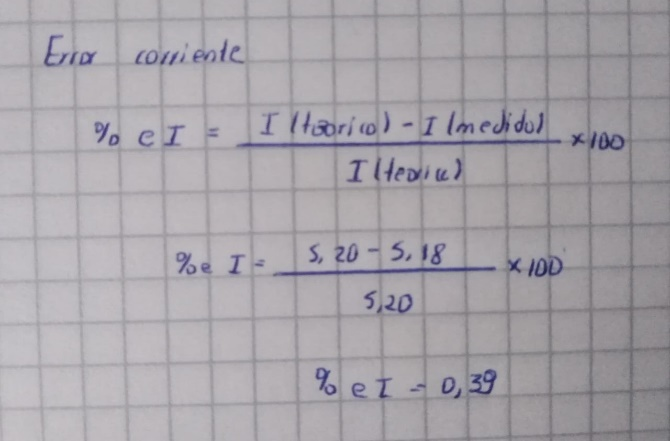 Error corriente
% e I = I (teorico) - I (medido) × 100
I (teoria)
% e I = 5,20 - 5,18 × 100
5,20
% e I = 0,39